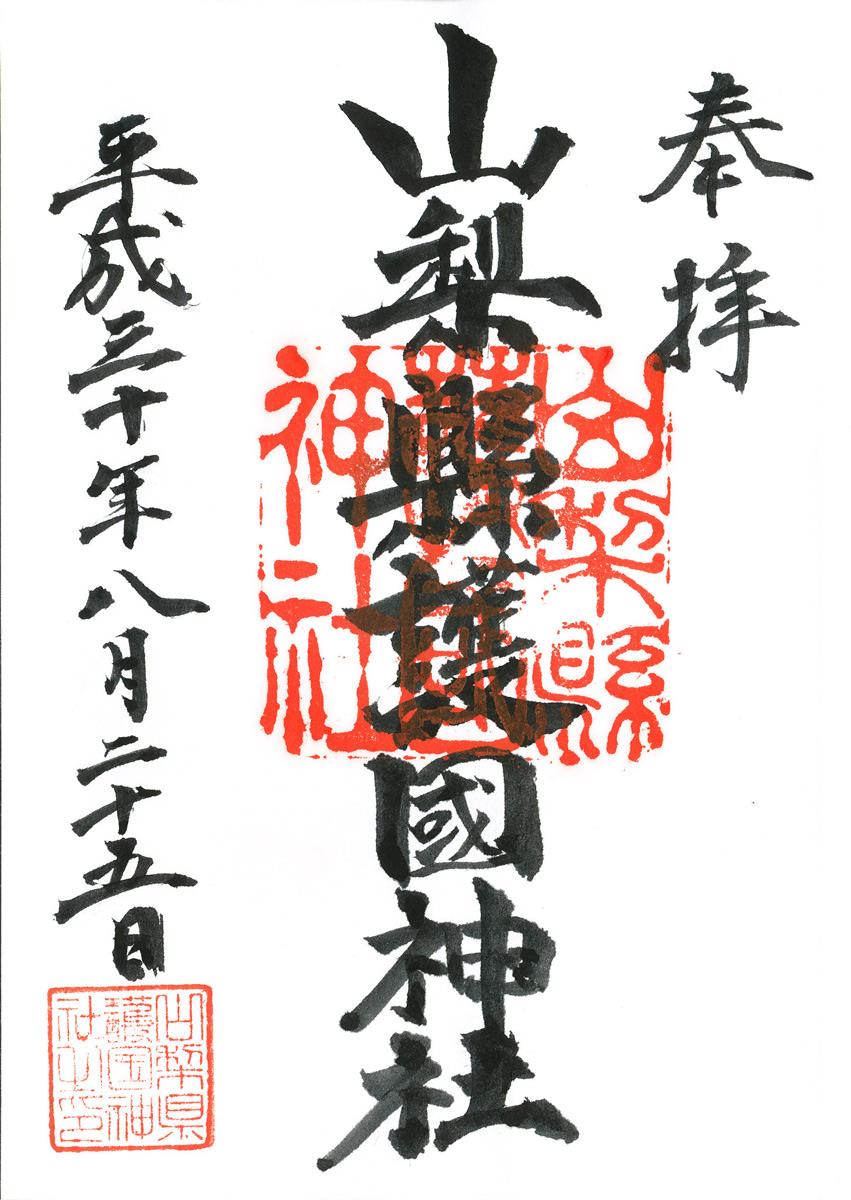 奉拝
山梨縣護國神社
山梨縣護國神社
平成三十年八月二十五日
山梨県護国神社之印